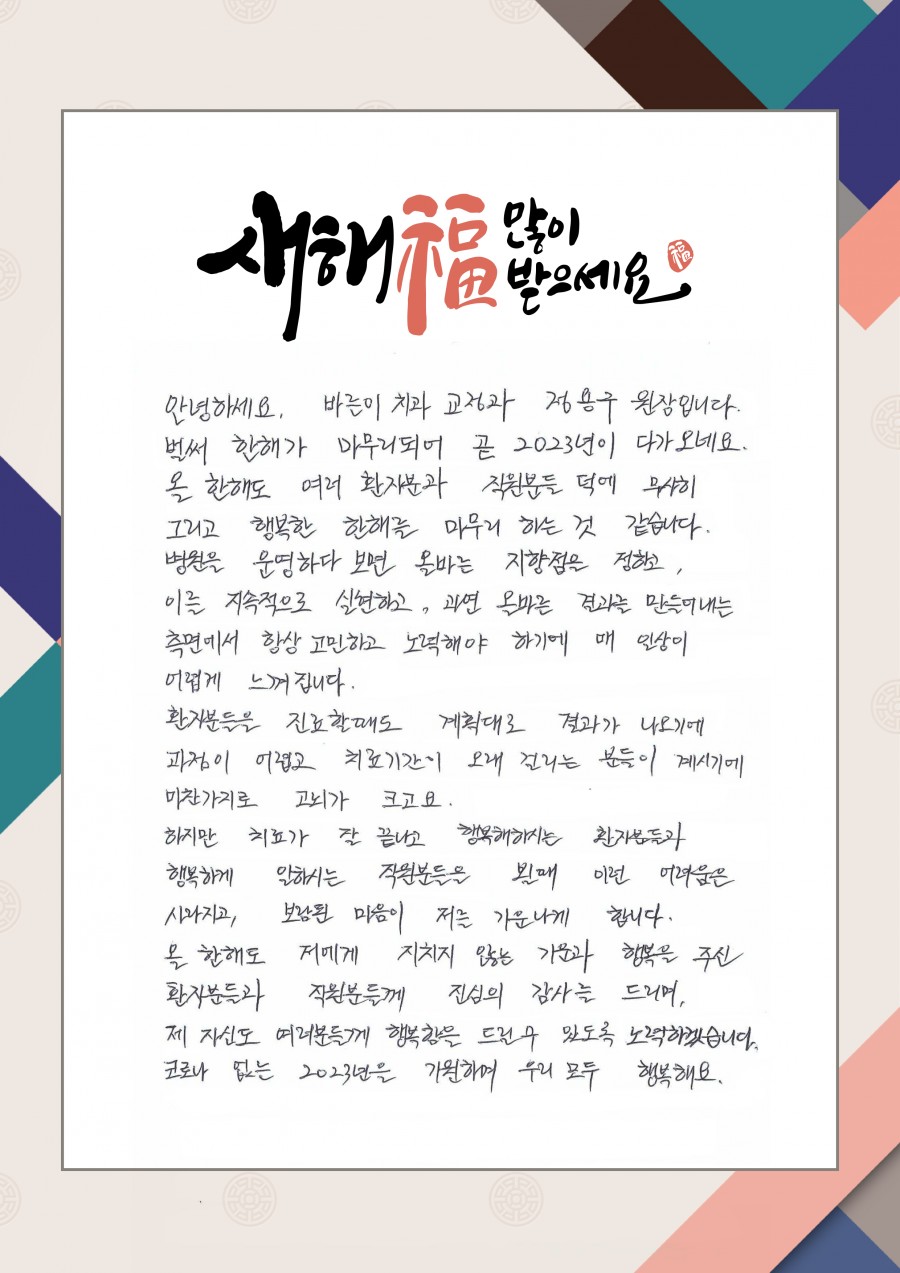 새해福많이
받으세요 福
안녕하세요, 바른이 치과 교정과 정용구 원장입니다.
벌써 한해가 마무리되어 곧 2023년이 다가오네요.
올 한해도 여러 환자분과 직원분들 덕에 무사히
그리고 행복한 한해를 마무리 하는 것 같습니다.
병원을 운영하다 보면 올바는 지향점을 정하고,
이를 지속적으로 실현하고, 과연 올바른 결과를 만들어내는
측면에서 항상 고민하고 노력해야 하기에 매 일상이
어렵게 느껴집니다.
환자분들을 진료할때도 계획대로 결과가 나오기에
과정이 어렵고 치료기간이 오래 걸리는 분들이 계시기에
마찬가지로 고뇌가 크고요.
하지만 치료가 잘 끝나고 행복해하시는 환자분들과
행복하게 일하시는 직원분들을 뵐때 이런 어려움은
사라지고, 보람된 마음이 저를 가운나게 합니다.
올 한해도 저에게 지치지 않는 기운과 행복을 주신
환자분들과 직원분들께 진심의 감사를 드리며,
제 자신도 여러분들께 행복함을 드릴수 있도록 노력하겠습니다.
코로나 없는 2023년을 기원하며 우리 모두 행복해요.